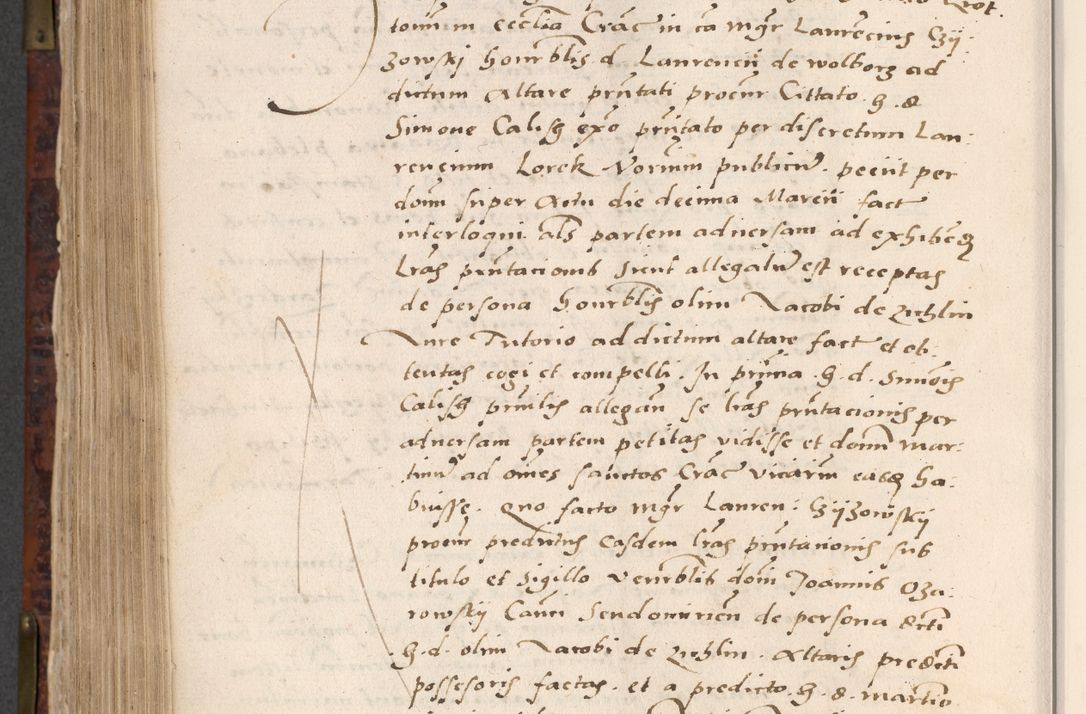 torum eccl̃ia Crac̃ in ca mgr̃ Laurencius Czÿ:
zowskj honorblis d. Laurencii de wolborz ad
dictum Altare prñtati procur Cittato. H. &
Simone Calisz exõ prñtato per discretum Lau:
rencium Lorek Norium publicũ. peciit per
dom̃ super Actu die decima Marcii fact
interloqui als partem aduersam ad exhibẽ
lras prñtacionis sicut allegatũ est receptas
de persona honorblis olim Jacobi de Lublin
Jure Tutorio ad dictum altare fact et ob:
tentas cogi et compelli. In prñtia. H. d. Simonis
Calisz prñtis allegan̄ se lras prñtacionis per
aduersam partem petitas vidisse et dom̃ Mar:
tinũ ad oĩnes sanctos Crac̃ vicariũ easq ha:
buisse. Quo facto mgr̃ Lauren: Czÿzowskÿ
procur predictus easdem lras prñtacionis sub
titulo et sigillo venerblis dom̃ Joannis Oza:
rowskÿ Canci Sendomirien̄ de persona dicti
H. d. olim Jacobi de Lublin. Altaris predicti
possesoris factas. et a predicto. H. d. Martio